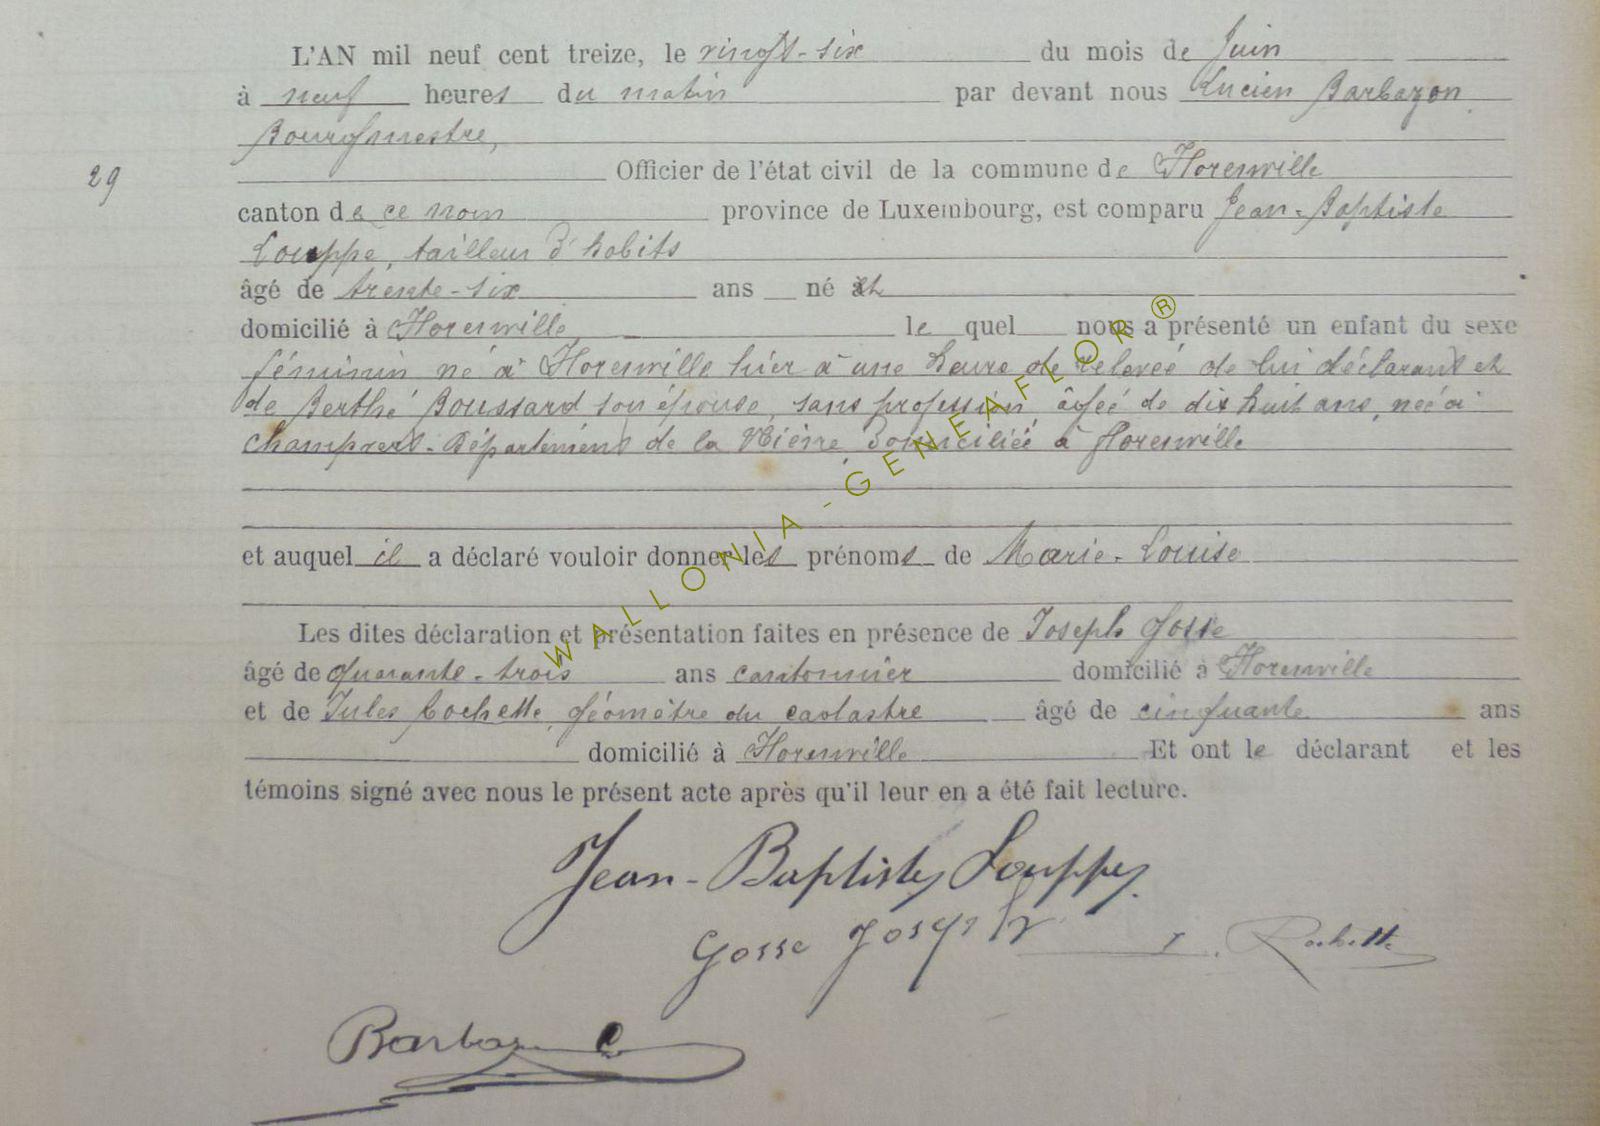 L'AN mil neuf cent treize, le vingt-six du mois de Juin
à neuf heures du matin par devant nous Lucien Barbazon
Bourgmestre,
29
Officier de l'état civil de la commune de Florenville
canton de ce nom province de Luxembourg, est comparu Jean-Baptiste
Louppe, tailleur d'habits
âgé de trente-six ans né
domicilié à Florenville le quel nous a présenté un enfant du sexe
féminin né à Florenville hier à une heure de relevée de lui déclarant et
de Berthe Boussard son épouse, sans profession âgée de dix huit ans, née à
Département de la Nièvre domiciliée à Florenville
et auquel il a déclaré vouloir donner les prénoms de Marie-Louise
Les dites déclaration et présentation faites en présence de Joseph Gosse
âgé de quarante-trois ans cantonnier domicilié à Florenville
et de Jules Rochette, géomètre du cadastre âgé de cinquante ans
domicilié à Florenville Et ont le déclarant et les
témoins signé avec nous le présent acte après qu'il leur en a été fait lecture.
Jean-Baptiste Louppe
Gosse Joseph J. Rochette
WALLONIA-GENEAFLOR®